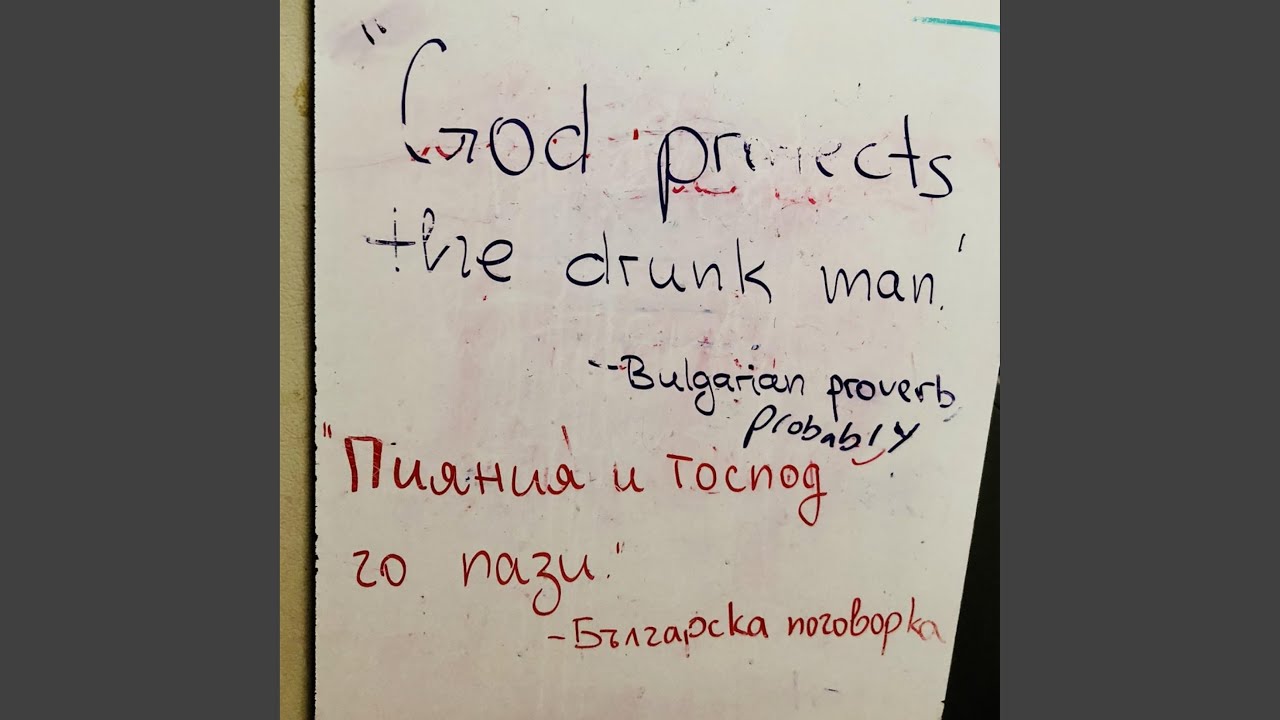 "God protects
the drunk man."
--Bulgarian proverb
probably
"Пияния и Господ
го пази."
-Българска поговорка